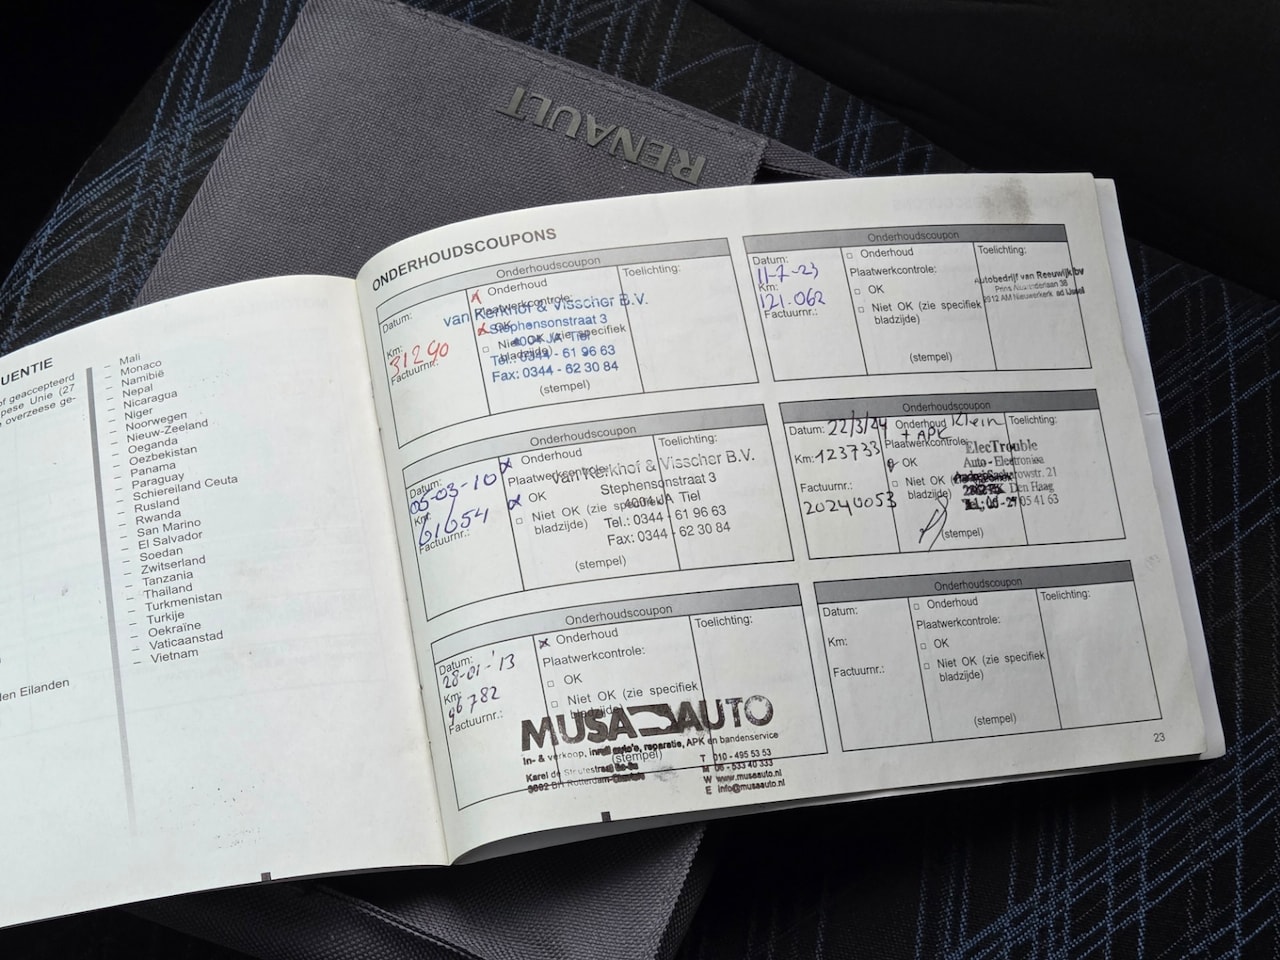 RENAULT
UENTIE
of geaccepteerd
pese Unie (27
e overzeese ge-
len Eilanden
– Mali
– Monaco
– Namibië
– Nepal
– Nicaragua
– Niger
– Noorwegen
– Nieuw-Zeeland
– Oeganda
– Oezbekistan
– Panama
– Paraguay
– Schiereiland Ceuta
– Rusland
– Rwanda
– San Marino
– El Salvador
– Soedan
– Zwitserland
– Tanzania
– Thailand
– Turkmenistan
– Turkije
– Oekraïne
– Vaticaanstad
– Vietnam
ONDERHOUDSCOUPONS
Onderhoudscoupon
Datum:
Km:
31290
Factuurnr.:
x Onderhoud
Plaatwerkcontrole:
x OK
Niet OK (zie specifiek
bladzijde)
(stempel)
Toelichting:
van Kerkhof & Visscher B.V.
Stephensonstraat 3
4004 JA Tiel
Tel.: 0344 - 61 96 63
Fax: 0344 - 62 30 84
Onderhoudscoupon
Datum:
05-03-10
Km:
61054
Factuurnr.:
x Onderhoud
Plaatwerkcontrole:
x OK
Niet OK (zie specifiek
bladzijde)
(stempel)
Toelichting:
Van Kerkhof & Visscher B.V.
Stephensonstraat 3
4004 JA Tiel
Tel.: 0344 - 61 96 63
Fax: 0344 - 62 30 84
Onderhoudscoupon
Datum:
28-01-'13
Km:
96782
Factuurnr.:
x Onderhoud
Plaatwerkcontrole:
OK
Niet OK (zie specifiek
bladzijde)
(stempel)
Toelichting:
MUSA AUTO
In- & verkoop, inruil auto's, reparatie, APK en bandenservice
Karel de
Rotterdam
T 010 - 495 53 53
M 06 - 533 40 333
W www.musaauto.nl
E info@musaauto.nl
Onderhoudscoupon
Datum:
11-7-23
Km:
121.062
Factuurnr.:
Onderhoud
Plaatwerkcontrole:
OK
Niet OK (zie specifiek
bladzijde)
(stempel)
Toelichting:
Autobedrijf van Reeuwijk bv
Prins Alexanderlaan 38
2912 AM Nieuwerkerk ad IJssel
Onderhoudscoupon
Datum: 22/3/24
Km: 123733
Factuurnr.:
20240053
Onderhoud Klein
+ APK
Plaatwerkcontrole:
OK
Niet OK (zie specifiek
bladzijde)
(stempel)
Toelichting:
ElecTrouble
Auto - Electronics
Den Haag
05 41 63
Onderhoudscoupon
Datum:
Km:
Factuurnr.:
Onderhoud
Plaatwerkcontrole:
OK
Niet OK (zie specifiek
bladzijde)
(stempel)
Toelichting:
23